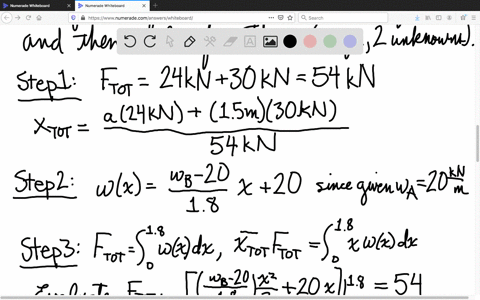 https://www.numerade.com/answers/whiteboard/
Search
and then , 2 unknowns).
Step 1: F_TOT = 24kN + 30kN = 54kN
x_TOT = (a(24kN) + (1.5m)(30kN)) / 54kN
Step 2: w(x) = (w_B - 20)/1.8 x + 20 since given w_A = 20 kN/m
Step 3: F_TOT = ∫_0^1.8 w(x)dx, x̄_TOT F_TOT = ∫_0^1.8 x w(x)dx
[((w_B - 20)/1.8) x²/2 + 20x]|^1.8 = 54